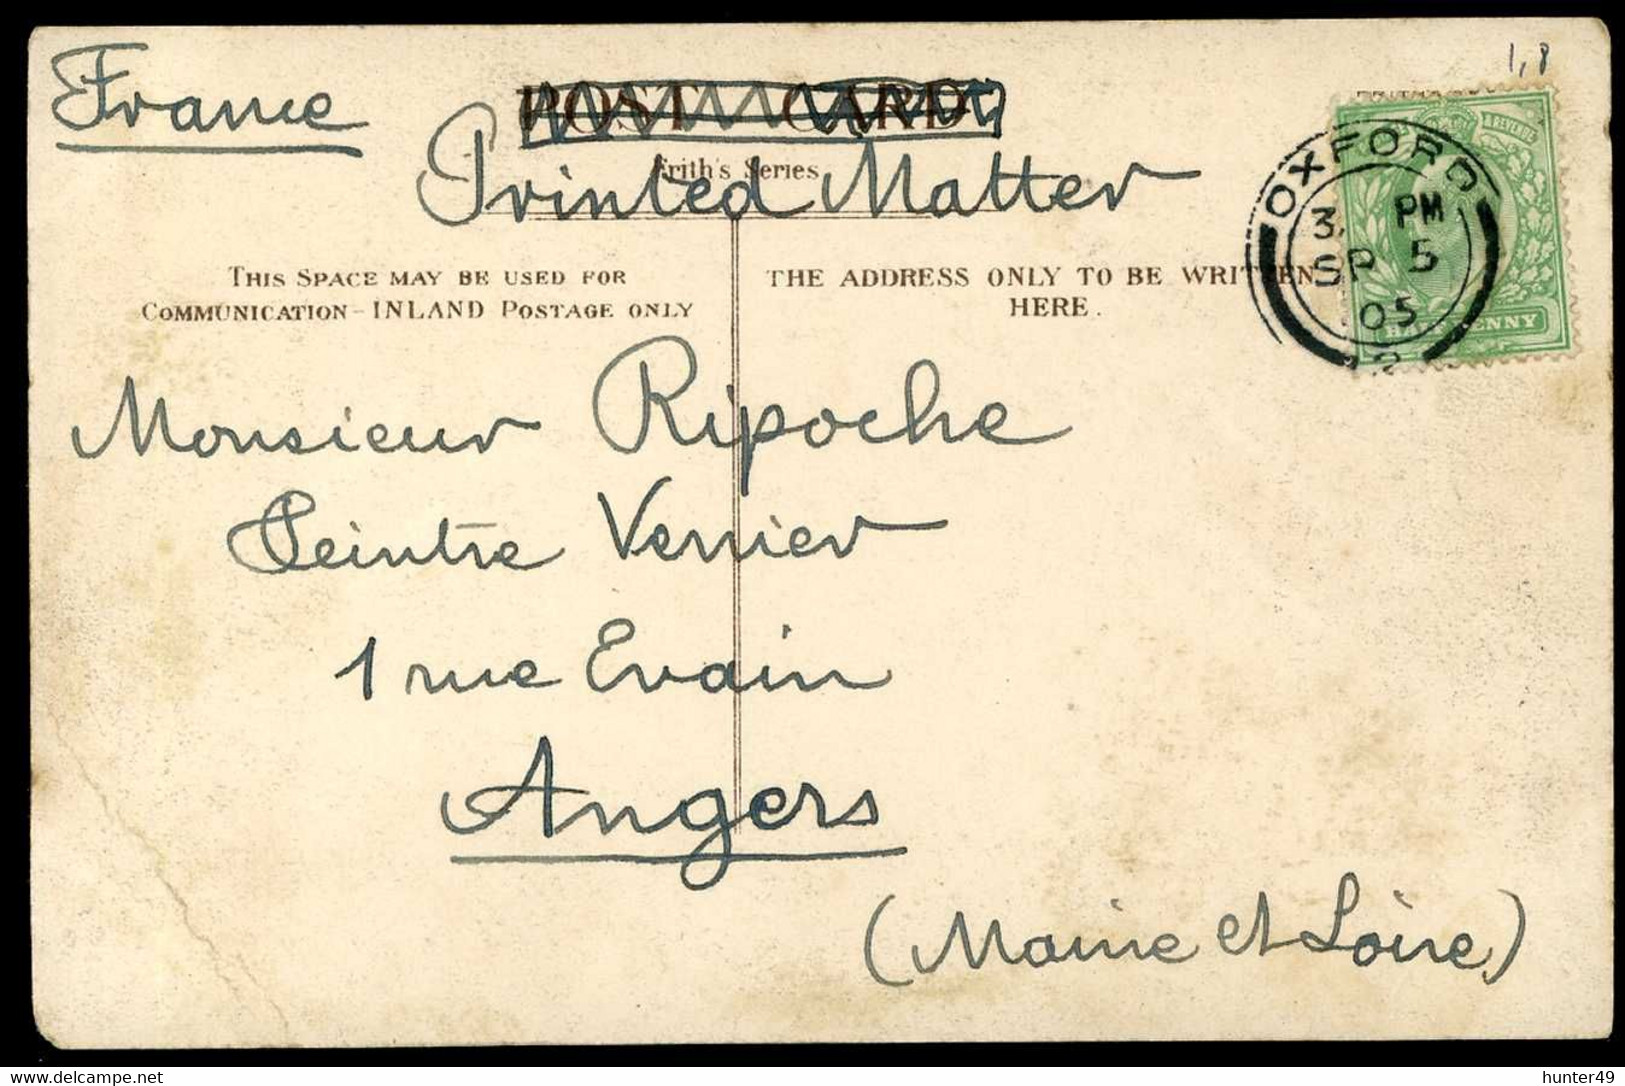 1,8
France
POST CARD
Frith's Series
Printed Matter
THIS SPACE MAY BE USED FOR
COMMUNICATION - INLAND POSTAGE ONLY
THE ADDRESS ONLY TO BE WRITTEN
HERE.
OXFORD
PM
SP 5
05
& REVENUE
HALFPENNY
Monsieur Ripoche
Peintre Verrier
1 rue Evain
Angers
(Maine et Loire)
hunter49